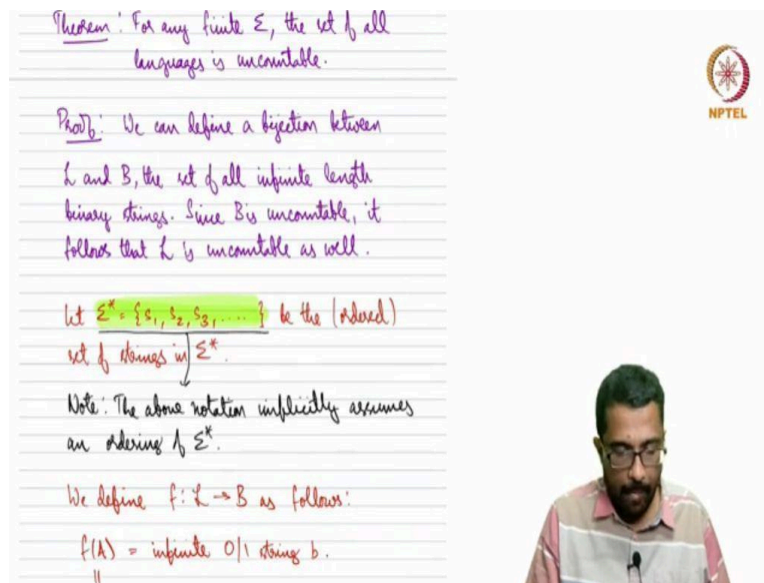 Theorem: For any finite Σ, the set of all
languages is uncountable.
NPTEL
Proof: We can define a bijection between
L and B, the set of all infinite length
binary strings. Since B is uncountable, it
follows that L is uncountable as well.
Let Σ* = {s₁, s₂, s₃, ....} be the (ordered)
set of strings in Σ*.
Note: The above notation implicitly assumes
an ordering of Σ*.
We define f: L → B as follows:
f(A) = infinite 0/1 string b.